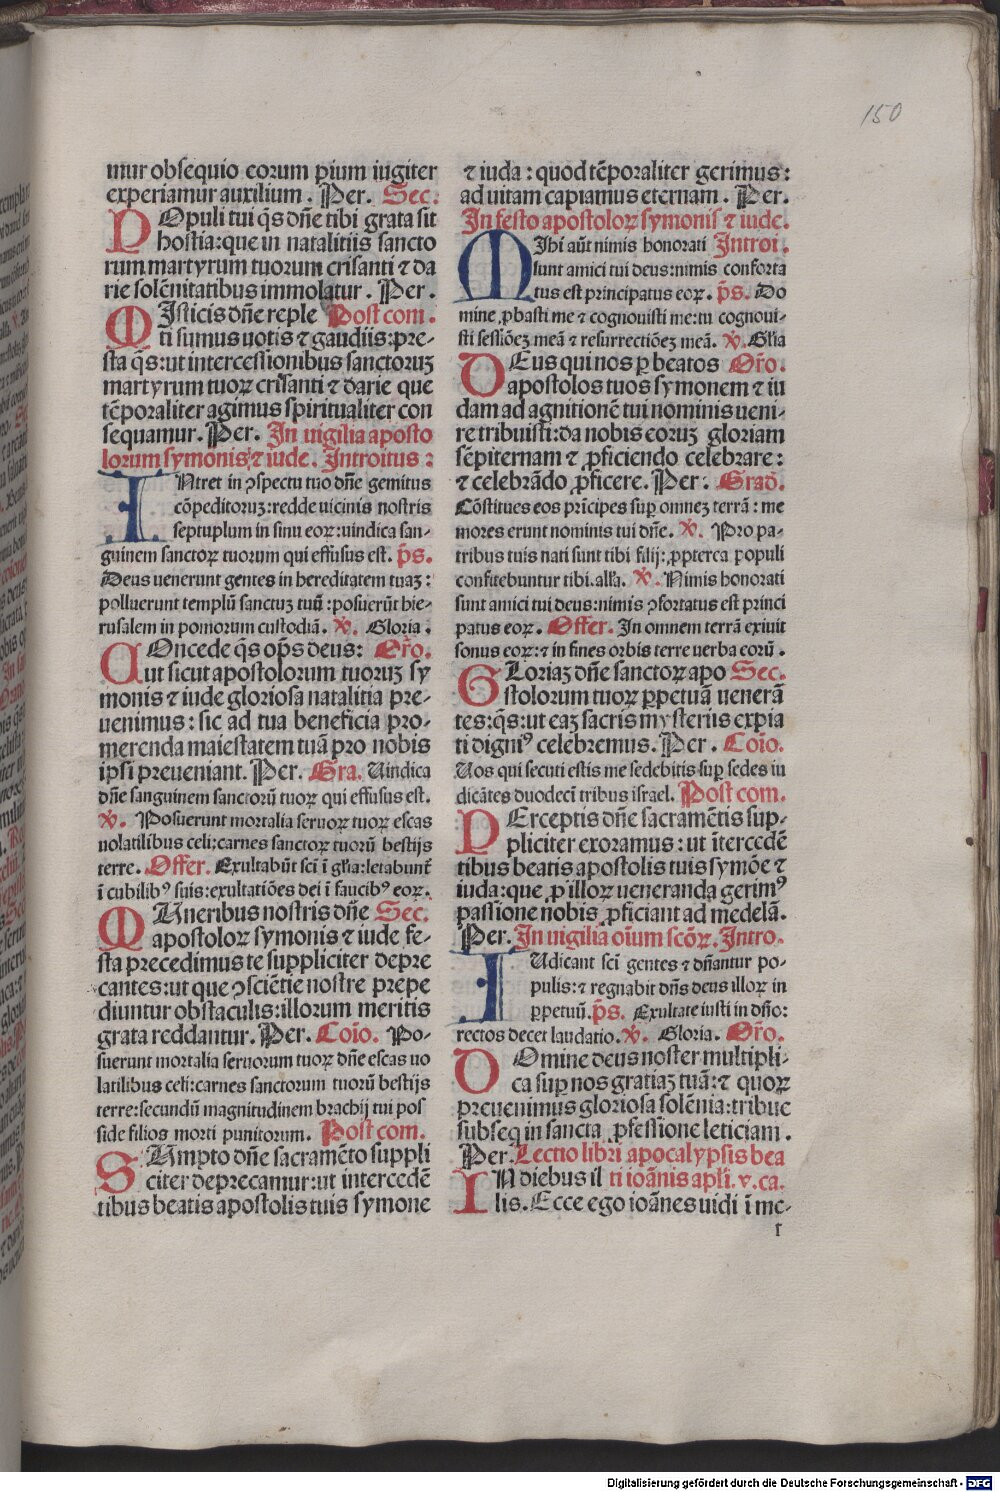 150
mur obsequio eorum pium iugiter
experiamur auxilium. Per. Sec.
POpuli tui q̄s dn̄e tibi grata sit
hostia: que in natalitiis sancto
rum martyrum tuorum crisanti ⁊ da
rie solēnitatibus immolatur. Per.
MIsticis dn̄e reple Post com.
ti sumus uotis ⁊ gaudiis: pre-
sta q̄s: ut intercessionibus sanctoruꝫ
martyrum tuoꝝ crisanti ⁊ darie que
tēporaliter agimus spiritualiter con
sequamur. Per. In uigilia aposto
lorum symonis ⁊ iude. Introitus:
INtret in ꝯspectu tuo dn̄e gemitus
cōpeditoruꝫ: redde uicinis nostris
septuplum in sinu eoꝝ: uindica san-
guinem sanctoꝝ tuorum qui effusus est. p̄s.
Deus uenerunt gentes in hereditatem tuaꝫ:
polluerunt templū sanctuꝫ tuū: posuerūt hie-
rusalem in pomorum custodiā. ℣. Gloria.
COncede q̄s op̄s deus: Or̄o.
ut sicut apostolorum tuoruꝫ sy
monis ⁊ iude gloriosa natalitia pre-
uenimus: sic ad tua beneficia pro-
merenda maiestatem tuā pro nobis
ipsi preueniant. Per. Gra. Uindica
dn̄e sanguinem sanctorū tuoꝝ qui effusus est.
℣. Posuerunt mortalia seruoꝝ tuoꝝ escas
uolatilibus celi: carnes sanctoꝝ tuorū bestijs
terre. Offer. Exultabūt scī ī gl̄ia: letabunt᷑
ī cubilibꝰ suis: exultatiōes dei ī faucibꝰ eoꝝ.
MUneribus nostris dn̄e Sec.
apostoloꝝ symonis ⁊ iude fe-
sta precedimus te suppliciter depre
cantes: ut que ꝯsciētie nostre prepe
diuntur obstaculis: illorum meritis
grata reddantur. Per. Coīo. Po-
suerunt mortalia seruorum tuoꝝ dn̄e escas uo
latilibus celi: carnes sanctorum tuorū bestijs
terre: secundū magnitudinem brachij tui pos
side filios morti punitorum. Post com.
SUmpto dn̄e sacramēto suppli
citer deprecamur: ut intercedē
tibus beatis apostolis tuis symone
⁊ iuda: quod tēporaliter gerimus:
ad uitam capiamus eternam. Per.
In festo apostoloꝝ symonis ⁊ iude.
MIhi aūt nimis honorati Introi.
sunt amici tui deus: nimis conforta
tus est principatus eoꝝ. p̄s. Do
mine ꝓbasti me ⁊ cognouisti me: tu cognoui-
sti sessiōeꝫ meā ⁊ resurrectiōeꝫ meā. ℣. Gl̄ia
DEus qui nos ꝑ beatos Or̄o.
apostolos tuos symonem ⁊ iu
dam ad agnitionē tui nominis ueni-
re tribuisti: da nobis eoruꝫ gloriam
sēpiternam ⁊ ꝓficiendo celebrare:
⁊ celebrādo ꝓficere. Per. Grad.
Cōstitues eos prīcipes suꝑ omneꝫ terrā: me
mores erunt nominis tui dn̄e. ℣. Pro pa-
tribus tuis nati sunt tibi filij: ꝓpterea populi
confitebuntur tibi. all̄a. ℣. Nimis honorati
sunt amici tui deus: nimis ꝯfortatus est princi
patus eoꝝ. Offer. In omnem terrā exiuit
sonus eoꝝ: ⁊ in fines orbis terre uerba eorū.
GLoriaꝫ dn̄e sanctoꝝ apo Sec.
stolorum tuoꝝ ꝑpetuā uenerā
tes: q̄s: ut eaꝫ sacris mysteriis expia
ti digniꝰ celebremus. Per. Coīo.
Uos qui secuti estis me sedebitis suꝑ sedes iu
dicātes duodecī tribus israel. Post com.
PErceptis dn̄e sacramētis sup-
pliciter exoramus: ut ītercedē
tibus beatis apostolis tuis symōe ⁊
iuda: que ꝓ illoꝝ ueneranda gerimꝰ
passione nobis ꝓficiant ad medelā.
Per. In uigilia oīum scōꝝ. Intro.
IUdicant scī gentes ⁊ dn̄antur po-
pulis: ⁊ regnabit dn̄s deus illoꝝ in
ꝑpetuū. p̄s. Exultate iusti in dn̄o:
rectos decet laudatio. ℣. Gloria. Or̄o.
DOmine deus noster multipli-
ca suꝑ nos gratiaꝫ tuā: ⁊ quoꝝ
preuenimus gloriosa solēnia: tribue
subseq in sancta ꝓfessione leticiam.
Per. Lectio libri apocalypsis bea
IN diebus il ti ioānis apl̄i. v. ca.
lis. Ecce ego ioānes uidi ī me-
r
Digitalisierung gefördert durch die Deutsche Forschungsgemeinschaft - DFG